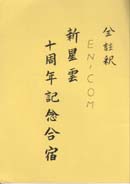 全註釈
EN-COM
新星雲
十周年記念合宿